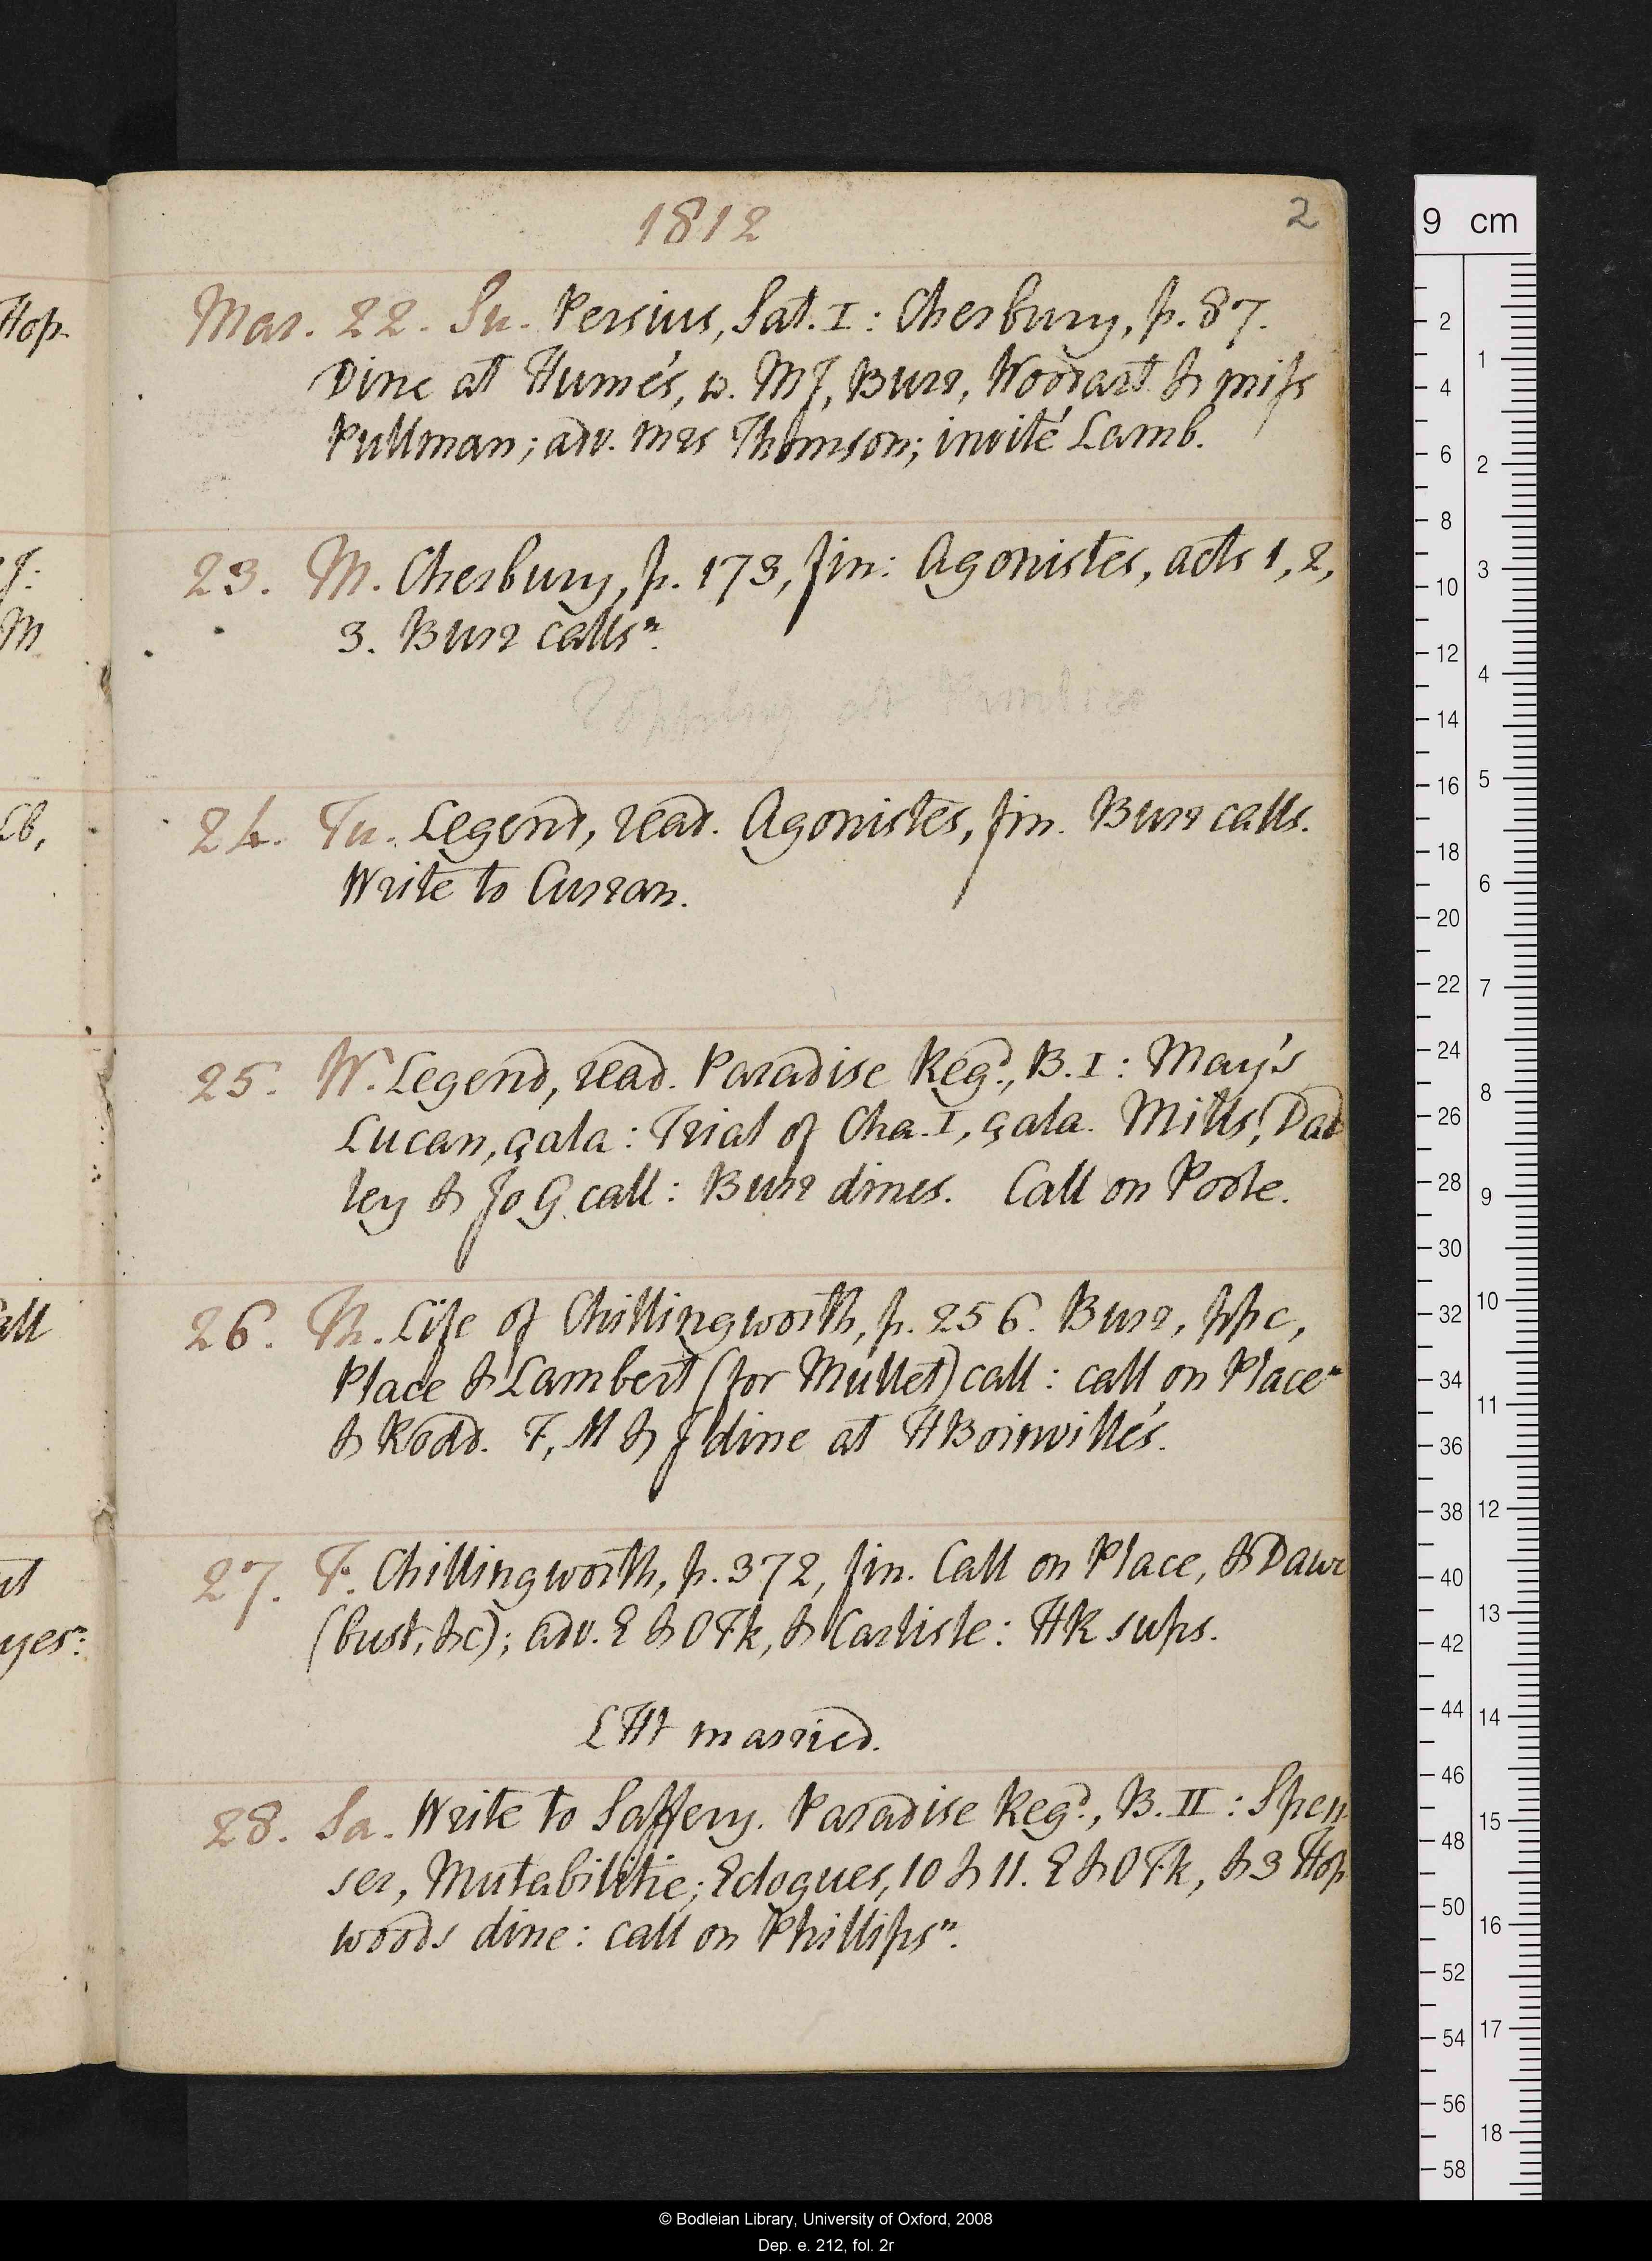 1812
2
Mar. 22. Su. Persius, Sat. I: Cherbury, p. 87.
Dine at Hume's, w. MJ, Burr, Woodart & miss
Pullman; adv. mrs Thomson; invité Lamb.
23. M. Cherbury, p. 173, fin: Agonistes, acts 1, 2,
3. Burr calls n.
24. Tu. Legend, read. Agonistes, fin. Burr calls.
Write to Curran.
25. W. Legend, read. Paradise Regd., B. I: May's
Lucan, çala: Trial of Cha. I, çala. Mills, Dad
ley & Jo G call: Burr dines. Call on Poole.
26. Th. Life of Chillingworth, p. 256. Burr, ppc,
Place & Lambert (for Mullet) call: call on Place n
& Rodd. F, M & J dine at HBoinville's.
27. F. Chillingworth, p. 372, fin. Call on Place, & Dawe
(bust, &c); adv. E & O Fk, & Carlisle: HR sups.
LHt married.
28. Sa. Write to Saffery. Paradise Regd., B. II: Spen
ser, Mutabilitie; Eclogues, 10 & 11. E & O Fk, & 3 Hop
woods dine: call on Phillips n.
Hop
J:
M
Lb,
all
ut
yes n:
9 cm
2
4
6
8
10
12
14
16
18
20
22
24
26
28
30
32
34
36
38
40
42
44
46
48
50
52
54
56
58
1
2
3
4
5
6
7
8
9
10
11
12
13
14
15
16
17
18
© Bodleian Library, University of Oxford, 2008
Dep. e. 212, fol. 2r